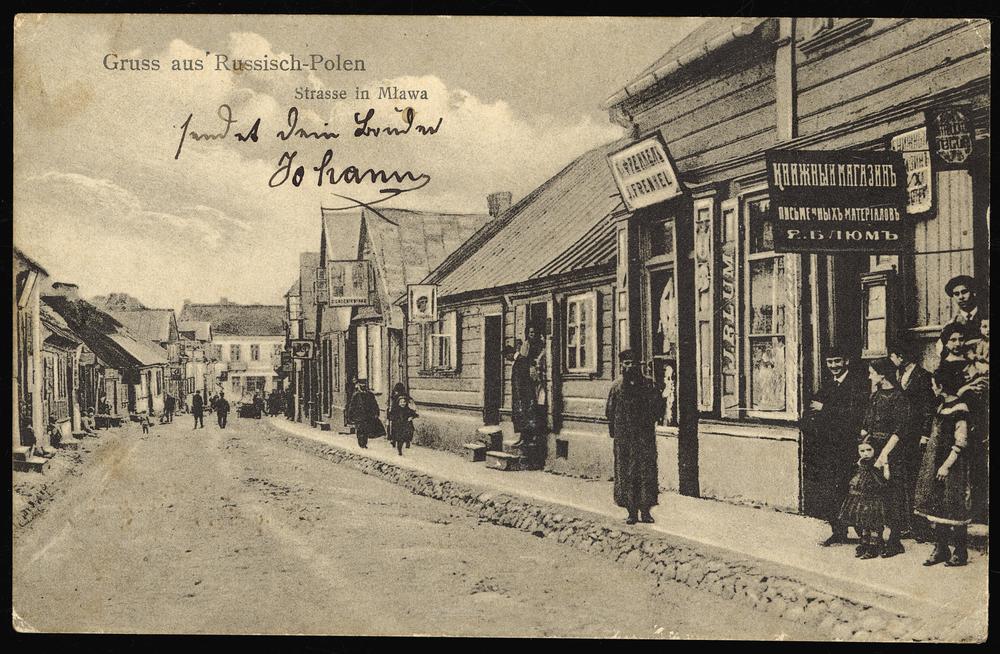 Gruss aus Russisch-Polen
Strasse in Mława
sendet dein Bruder
Johann
Френкель
FRENKEL
КНИЖНЫЙ МАГАЗИНЪ
ПИСЬМЕННЫХЪ МАТЕРІАЛОВЪ
Я. БЛЮМЪ